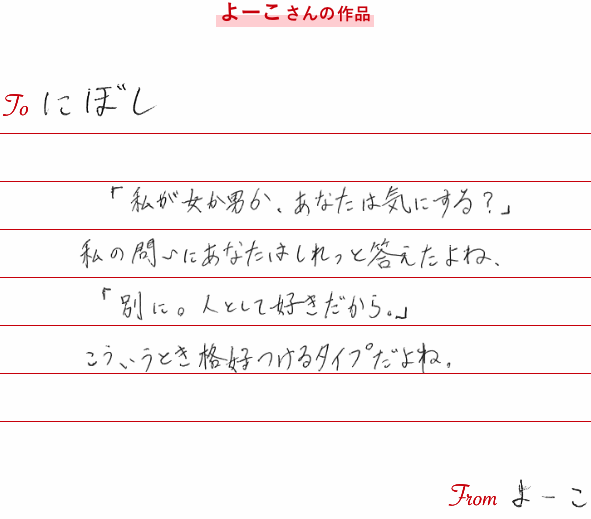 よーこさんの作品
To にぼし
「私が女か男か、あなたは気にする？」
私の問いにあなたはしれっと答えたよね、
「別に。人として好きだから。」
こういうとき格好つけるタイプだよね。
From よーこ